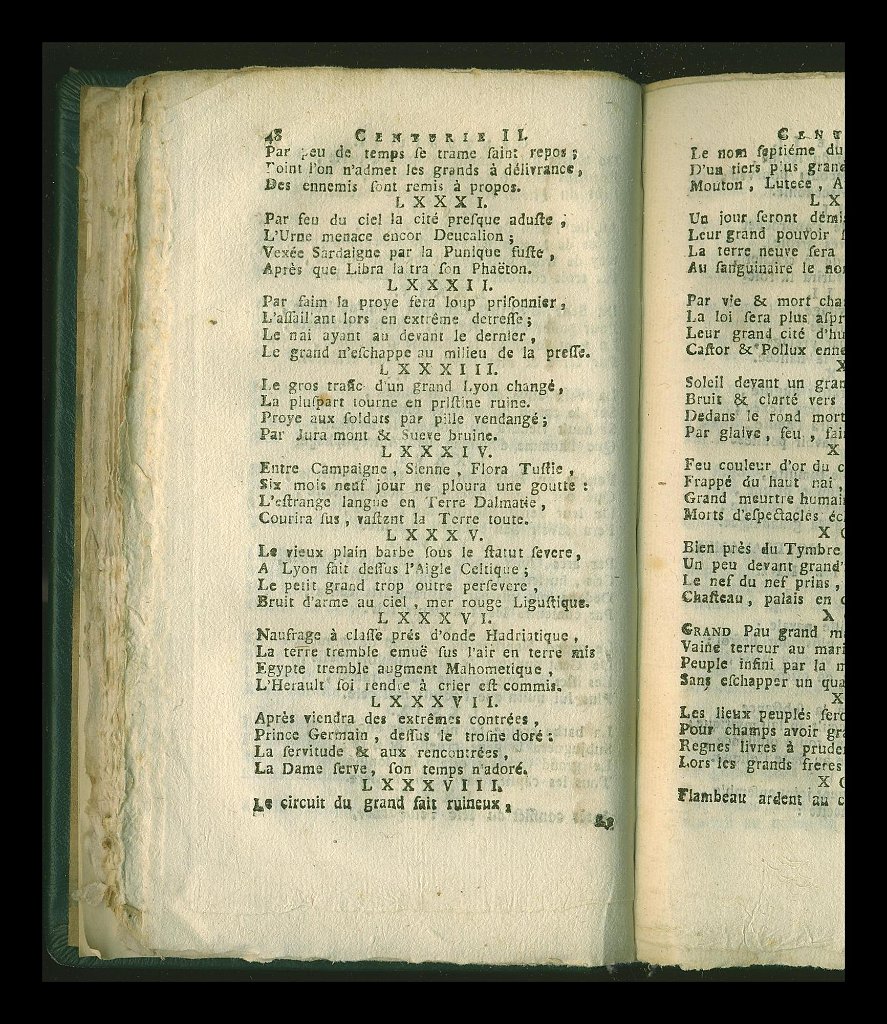 48 CENTURIE II.
Par peu de temps ſe trame ſaint repos ;
Point l'on n'admet les grands à délivrance,
Des ennemis ſont remis à propos.
LXXXI.
Par feu du ciel la cité preſque aduſte ,
L'Urne menace encor Deucalion ;
Vexée Sardaigne par la Punique fuſte ,
Après que Libra la tra ſon Phaëton.
LXXXII.
Par faim la proye ſera loup priſonnier ,
L'aſſaillant lors en extrême detreſſe ;
Le nai ayant au devant le dernier ,
Le grand n'eſchappe au milieu de la preſſe.
LXXXIII.
Le gros trafic d'un grand Lyon changé,
La pluſpart tourne en priſtine ruine.
Proye aux ſoldats par pille vendangé ;
Par Jura mont & Sueve bruine.
LXXXIV.
Entre Campaigne , Sienne , Flora Tuſtie ,
Six mois neuf jour ne ploura une goutte :
L'eſtrange langue en Terre Dalmatie ,
Courira ſus , vaſtant la Terre toute.
LXXXV.
Le vieux plain barbe ſous le ſtatut ſevere,
A Lyon fait deſſus l'Aigle Celtique ;
Le petit grand trop outre perſevere ,
Bruit d'arme au ciel , mer rouge Liguſtique.
LXXXVI.
Naufrage à claſſe prés d'onde Hadriatique ,
La terre tremble emuë ſus l'air en terre mis
Egypte tremble augment Mahometique ,
L'Herault ſoi rendre à crier eſt commis.
LXXXVII.
Après viendra des extrêmes contrées ,
Prince Germain , deſſus le troſne doré :
La ſervitude & aux rencontrées ,
La Dame ſerve , ſon temps n'adoré.
LXXXVIII.
Le circuit du grand fait ruineux ,
CENT
Le nom ſeptiéme du
D'un tiers plus grand
Mouton , Lutece , A
LX
Un jour ſeront démi
Leur grand pouvoir
La terre neuve ſera
Au ſanguinaire le no
Par vie & mort cha
La loi ſera plus aſpr
Leur grand cité d'hu
Caſtor & Pollux enne
X
Soleil devant un gran
Bruit & clarté vers
Dedans le rond mort
Par glaive , feu , fai
X
Feu couleur d'or du c
Frappé du haut nai ,
Grand meurtre humai
Morts d'eſpectacles éc
XC
Bien près du Tymbre
Un peu devant grand
Le nef du nef prins ,
Chaſteau , palais en c
X
GRAND Pau grand m
Vaine terreur au mari
Peuple infini par la m
Sans eſchapper un qua
X
Les lieux peuplés ſero
Pour champs avoir gra
Regnes livres à prude
Lors les grands freres
XC
Flambeau ardent au c